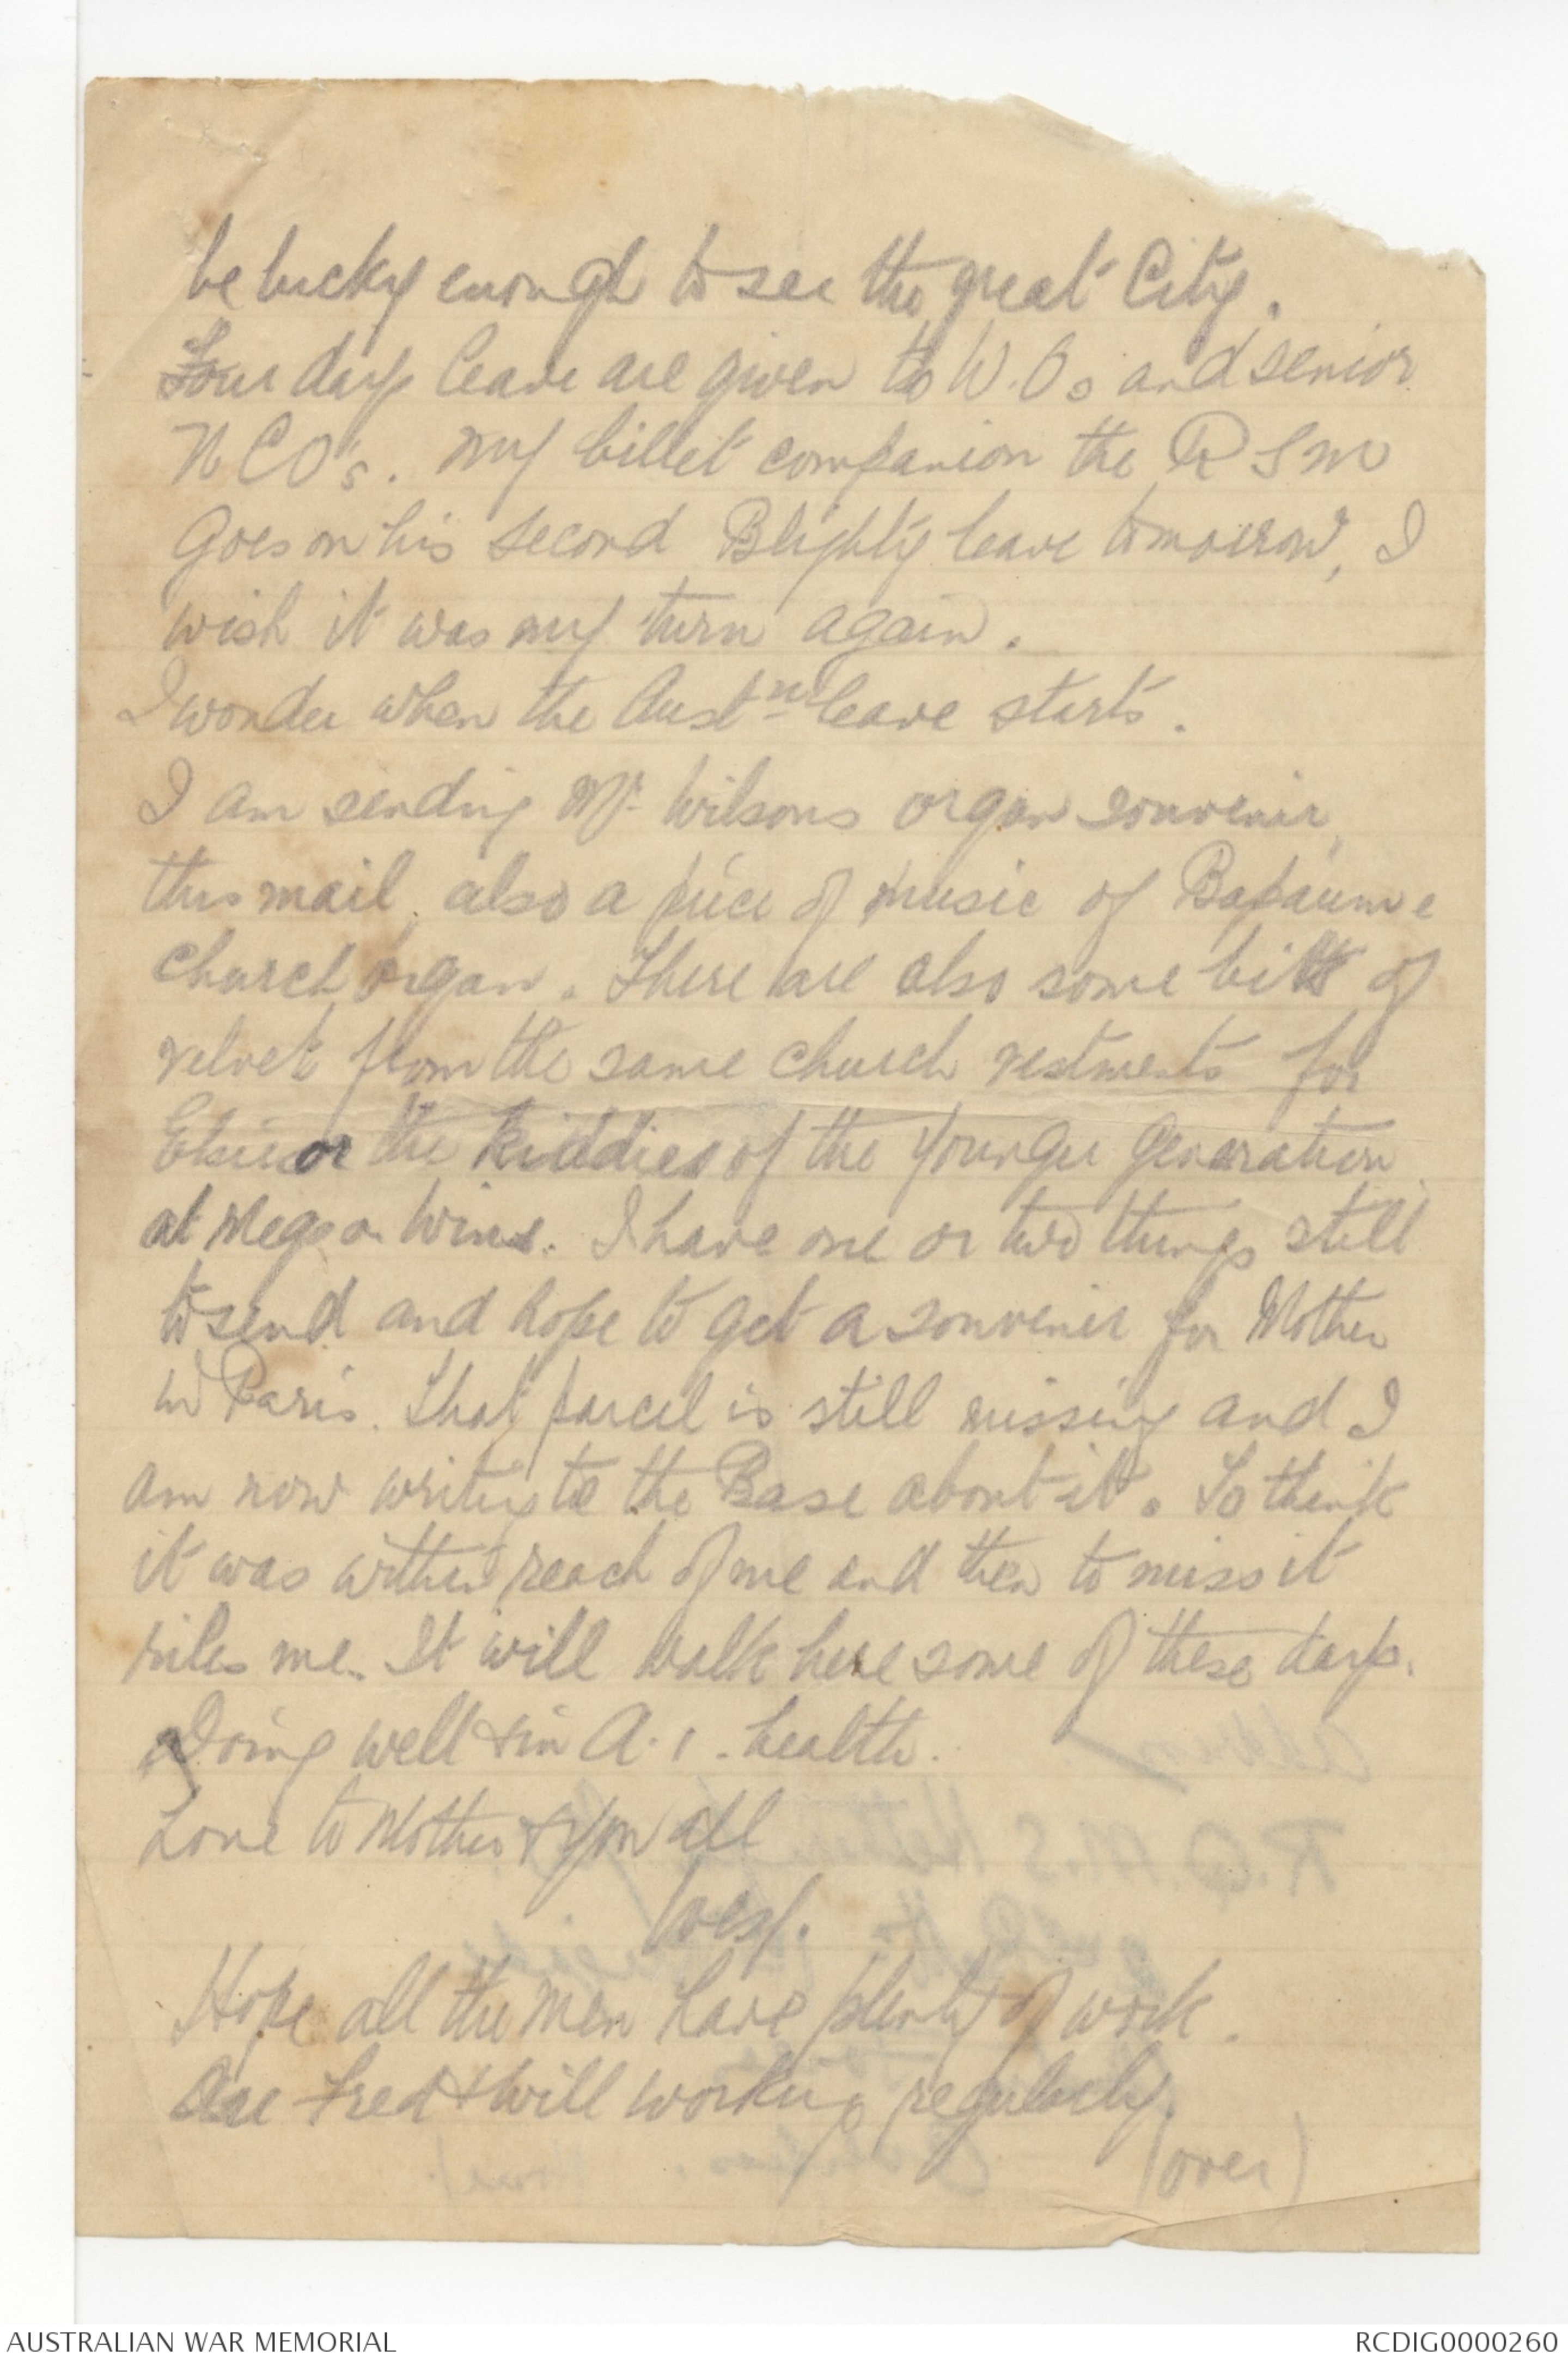 be lucky enough to see the great City.
Four days leave are given to W.Os and senior
NCO's. My billet companion the RSM
goes on his second Blighty leave tomorrow, I
wish it was my turn again.
I wonder when the Austn leave starts.
I am sending Mr Wilsons organ souvenir
this mail, also a piece of music of Bapaume
church organ. There are also some bits of
velvet from the same church vestments for
Elsie or the kiddies of the younger generation
at Megs or Wins. I have one or two things still
to send and hope to get a souvenir for Mother
in Paris. That parcel is still missing and I
am now writing to the Base about it. To think
it was within reach of me and then to miss it
riles me. It will walk here some of these days.
Doing well & in A.1. health.
Love to Mother & you all
Wesy.
Hope all the men have plenty of work.
Are Fred & Will working regularly.
(over)
AUSTRALIAN WAR MEMORIAL
RCDIG0000260